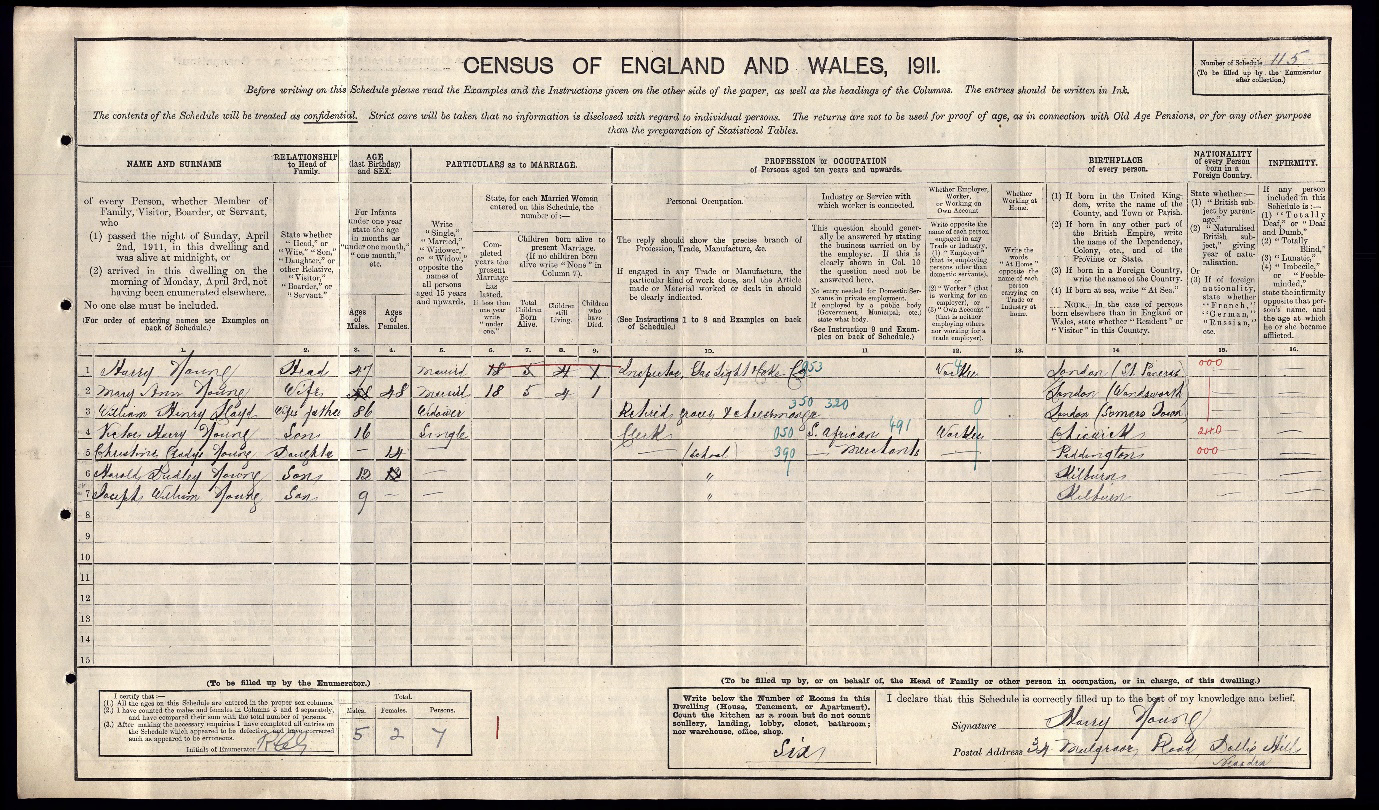 CENSUS OF ENGLAND AND WALES, 1911.
Number of Schedule 115
(To be filled up by the Enumerator after collection.)
Before writing on this Schedule please read the Examples and the Instructions given on the other side of the paper, as well as the headings of the Columns. The entries should be written in Ink.
The contents of the Schedule will be treated as confidential. Strict care will be taken that no information is disclosed with regard to individual persons. The returns are not to be used for proof of age, as in connection with Old Age Pensions, or for any other purpose
than the preparation of Statistical Tables.
NAME AND SURNAME
of every Person, whether Member of
Family, Visitor, Boarder, or Servant,
who
(1) passed the night of Sunday, April
2nd, 1911, in this dwelling and
was alive at midnight, or
(2) arrived in this dwelling on the
morning of Monday, April 3rd, not
having been enumerated elsewhere.
No one else must be included.
(For order of entering names see Examples on
back of Schedule.)
RELATIONSHIP
to Head of
Family.
State whether
"Head," or
"Wife," "Son,"
"Daughter," or
other Relative,
"Visitor,"
"Boarder," or
"Servant."
AGE
(last Birthday)
and SEX.
For Infants
under one year
state the age
in months as
"under one month,"
"one month,"
etc.
Ages of Males.
Ages of Females.
PARTICULARS as to MARRIAGE.
Write
"Single,"
"Married,"
"Widower,"
or "Widow,"
opposite the
names of
all persons
aged 15 years
and upwards.
State, for each Married Woman
entered on this Schedule, the
number of:—
Completed years the present Marriage has lasted. If less than one year write "under one."
Children born alive to
present Marriage.
(If no children born
alive write "None" in
Column 7).
Total Children Born Alive.
Children still Living.
Children who have Died.
PROFESSION or OCCUPATION
of Persons aged ten years and upwards.
Personal Occupation.
The reply should show the precise branch of
Profession, Trade, Manufacture, &c.
If engaged in any Trade or Manufacture, the
particular kind of work done, and the Article
made or Material worked or dealt in should
be clearly indicated.
(See Instructions 1 to 8 and Examples on back
of Schedule.)
Industry or Service with
which worker is connected.
This question should generally
be answered by stating
the business carried on by
the employer. If this is
clearly shown in Col. 10
the question need not be
answered here.
No entry needed for Domestic Servants
in private employment.
If employed by a public body
(Government, Municipal, etc.)
state what body.
(See Instruction 9 and Examples
on back of Schedule.)
Whether Employer, Worker, or Working on Own Account
Write opposite the
name of each person
engaged in any
Trade or Industry,
(1) "Employer"
(that is employing
persons other than
domestic servants),
or
(2) "Worker" (that
is working for an
employer), or
(3) "Own Account"
(that is neither
employing others
nor working for a
trade employer).
Whether Working at Home.
Write the words "At Home" opposite the name of each person carrying on Trade or Industry at home.
BIRTHPLACE
of every person.
(1) If born in the United Kingdom,
write the name of the
County, and Town or Parish.
(2) If born in any other part of
the British Empire, write
the name of the Dependency,
Colony, etc., and of the
Province or State.
(3) If born in a Foreign Country,
write the name of the Country.
(4) If born at sea, write "At Sea."
NOTE.—In the case of persons
born elsewhere than in England or
Wales, state whether "Resident" or
"Visitor" in this Country.
NATIONALITY
of every Person
born in a
Foreign Country.
State whether:—
(1) "British subject
by parentage,"
(2) "Naturalised
British subject,"
giving
year of naturalisation.
Or
(3) If of foreign
nationality,
state whether
"French,"
"German,"
"Russian,"
etc.
INFIRMITY.
If any person
included in this
Schedule is:—
(1) "Totally
Deaf," or "Deaf
and Dumb,"
(2) "Totally
Blind,"
(3) "Lunatic,"
(4) "Imbecile,"
or "Feeble-minded,"
state the infirmity
opposite that person's
name, and
the age at which
he or she became
afflicted.
1. 2. 3. 4. 5. 6. 7. 8. 9. 10. 11. 12. 13. 14. 15. 16.
1 Harry Young Head 47 Married 18 5 4 1 Inspector, Gas Light & Coke Co 953 Worker London (St. Pancras) 000
2 Mary Ann Young Wife 48 Married 18 5 4 1 London (Wandsworth)
3 William Henry Wifes father 86 Widower Retired grocer & cheesemonger 350 320 0 London (Somers Town)
4 Victor Harry Young Son 16 Single Clerk 050 S. African 491 Worker Chiswick 240
5 Christine Gladys Young Daughter — 14 — (School) 390 — Merchants Paddington 000
6 Harold Dudley Young Son 12 — " Kilburn
7 Joseph William Young Son 9 — — " Kilburn
8
9
10
11
12
13
14
15
(To be filled up by the Enumerator.)
I certify that:—
(1.) All the ages on this Schedule are entered in the proper sex columns.
(2.) I have counted the males and females in Columns 3 and 4 separately,
and have compared their sum with the total number of persons.
(3.) After making the necessary enquiries I have completed all entries on
the Schedule which appeared to be defective, and have corrected
such as appeared to be erroneous.
Initials of Enumerator
Total.
Males. Females. Persons.
5 2 7
(To be filled up by, or on behalf of, the Head of Family or other person in occupation, or in charge, of this dwelling.)
Write below the Number of Rooms in this
Dwelling (House, Tenement, or Apartment).
Count the kitchen as a room but do not count
scullery, landing, lobby, closet, bathroom;
nor warehouse, office, shop.
Six
I declare that this Schedule is correctly filled up to the best of my knowledge and belief.
Signature Harry Young
Postal Address 34 Mulgrave Road, Dollis Hill
Neasden